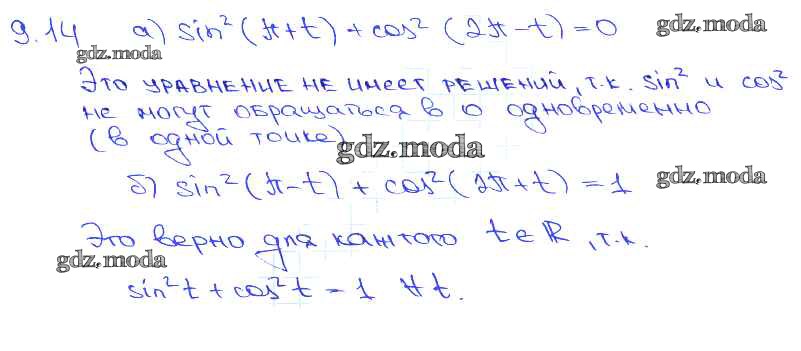 9.14 а) sin²(π+t) + cos²(2π-t) = 0 gdz.moda
gdz.moda
Это уравнение не имеет решений, т.к. sin² и cos²
не могут обращаться в 0 одновременно
(в одной точке) gdz.moda
б) sin²(π-t) + cos²(2π+t) = 1 gdz.moda
Это верно для каждого t∈R, т.к.
gdz.moda
sin²t + cos²t = 1 ∀t.